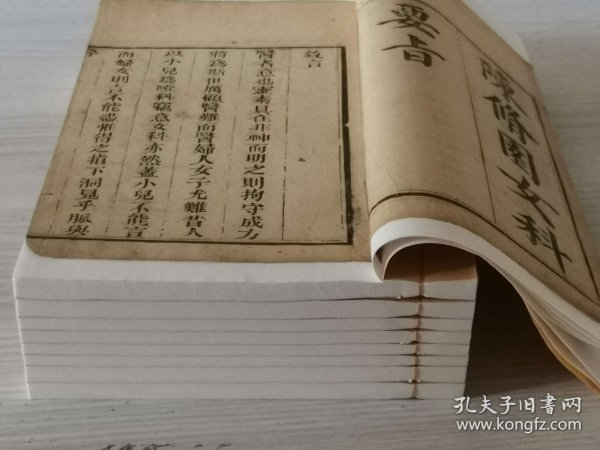 陳修園女科
要旨
敘言
醫者意也靈素具在非神而明之則拘守成方
將為斯世厲顧醫難而醫婦人女子尤難昔人
以小兒為啞科竊意女科亦然蓋小兒不能言
而婦女則言不能盡惟得之指下洞見乎脈與
孔夫子旧书网
www.kongfz.com